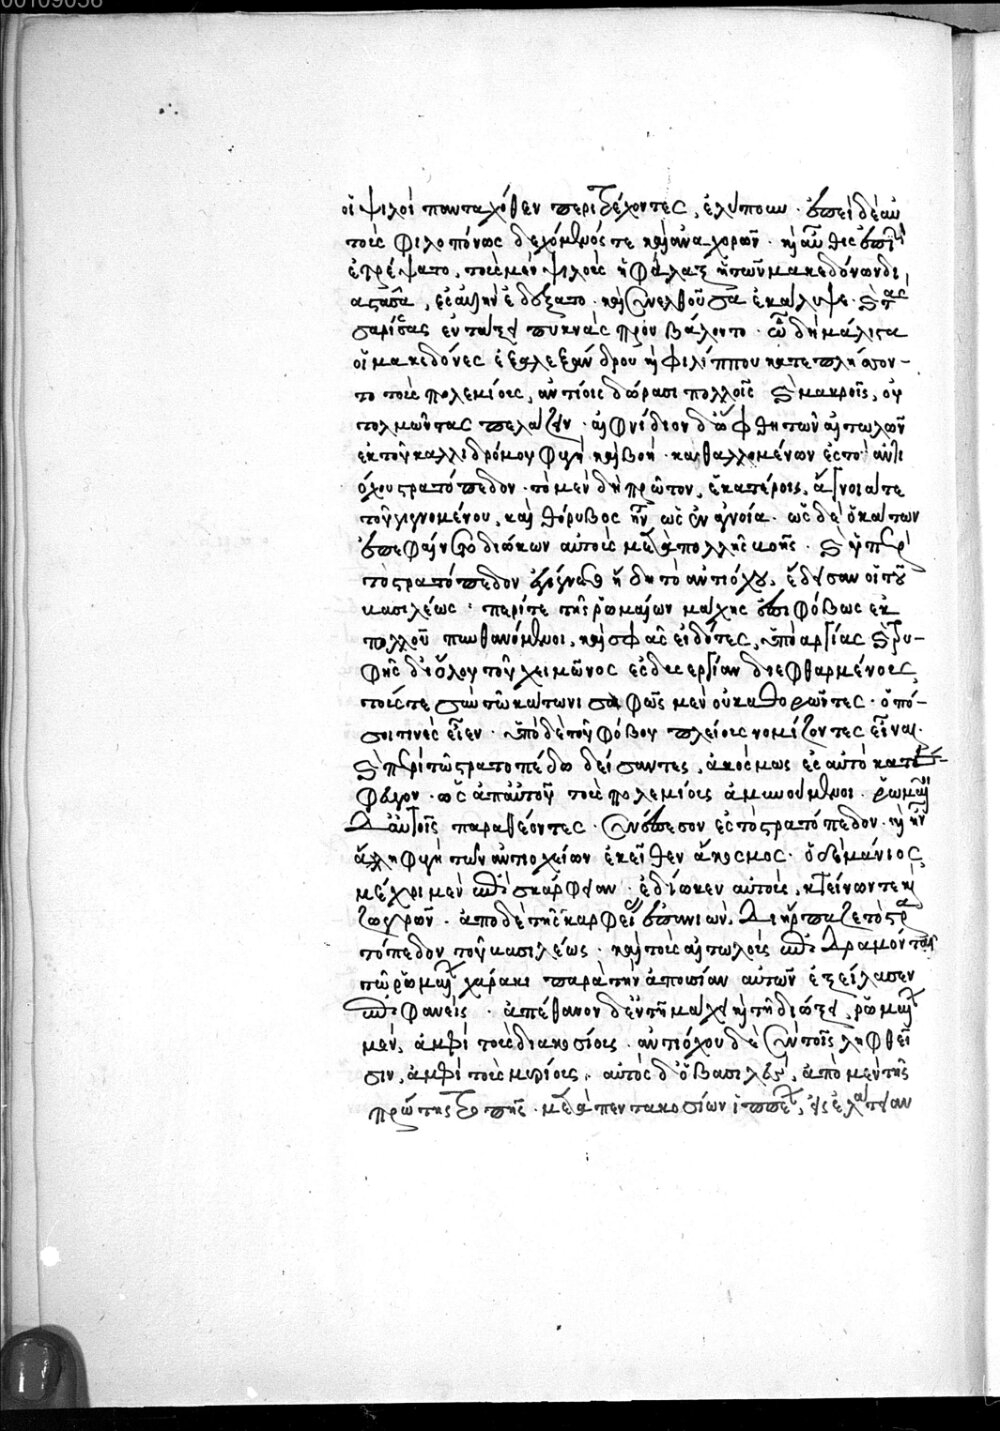 οἱ ψιλοὶ πανταχόθεν περιτρέχοντες, ἐλύπουν. ἐπεὶ δὲ αὐ
τοὺς φιλοπόνως δεχόμενός τε καὶ ἀναχωρῶν. καὶ αὖθις ἐπι
ἐτρέψατο, τοὺς μὲν ψιλοὺς ἡ φάλαγξ ἡ τῶν μακεδόνων δι
αστᾶσα, ἐς αὑτὴν ἐδέξατο. καὶ συνελθοῦσα ἐκάλυψε. καὶ τὰς
σαρίσσας ἐν τάξει πυκνὰς προυβάλοντο. ᾧ δὴ μάλιστα
οἱ μακεδόνες ἐξ ἀλεξάνδρου ἢ φιλίππου κατεπλήσσον-
το τοὺς πολεμίους, ἀντίοις δώρασι πολλοῖς καὶ μακροῖς, οὐ
τολμῶντας πελάζειν. αἰφνίδιον δ' ὤφθη τῶν αἰτωλῶν
ἐκ τοῦ καλλιδρόμου φυγὴ καὶ βοὴ. καθαλλομένων ἐς τὸ ἀντι
όχου στρατόπεδον. τὸ μὲν δὴ πρῶτον, ἑκατέροις, ἄγνοιά τε
τοῦ γιγνομένου, καὶ θόρυβος ἦν ὡς ἐν ἀγνοία. ὡς δὲ ὁ κάτων
ἐπεφαίνετο διώκων αὐτοὺς μετὰ πολλῆς βοῆς. καὶ ὑπὲρ
τὸ στρατόπεδον ἐγίγνετο ἤδη τὸ ἀντιόχου, ἔδεισαν οἱ τοῦ
βασιλέως. περί τε τῆς ῥωμαίων μάχης ἐπιφόβως ἐκ
πολλοῦ πυνθανόμενοι, καὶ σφᾶς εἰδότες, ὑπὸ ἀργίας καὶ τρυ-
φῆς δι' ὅλου τοῦ χειμῶνος ἐς δυσεργίαν διεφθαρμένους,
τούς τε σὺν τῷ κάτωνι σαφῶς μὲν οὐ καθορῶντες. ὁπό-
σοι τινὲς εἶεν. ὑπὸ δὲ τοῦ φόβου πλείους νομίζοντες εἶναι.
καὶ περὶ τῷ στρατοπέδῳ δείσαντες, ἀκόσμως ἐς αὐτὸ κατέ-
φευγον. ὡς ἀπ' αὐτοῦ τοὺς πολεμίους ἀμυνούμενοι. ῥωμαῖοι
δ' αὐτοῖς παραθέοντες. συνέπεσον ἐς τὸ στρατόπεδον. καὶ ἦν
ἄλλη φυγὴ τῶν ἀντιοχείων ἐκεῖθεν ἄκοσμος. ὁ δὲ μάνιος,
μέχρι μὲν ἐπὶ σκάρφειαν. ἐδίωκεν αὐτοὺς, κτείνων τε καὶ
ζωγρῶν. ἀπὸ δὲ τῆς σκαρφείας ἐπανιών. διήρπαζε τὸ στρα
τόπεδον τοῦ βασιλέως. καὶ τοὺς αἰτωλοὺς ἐπιδραμόντας
τῷ ῥωμαίων χάρακι παρὰ τὴν ἀπουσίαν αὐτῶν ἐξείλασεν
ἐπιφανείς. ἀπέθανον δ' ἐν τῇ μάχῃ καὶ τῇ διώξει, ῥωμαίων
μὲν, ἀμφὶ τοὺς διακοσίους. ἀντιόχου δὲ σὺν τοῖς ληφθεῖ
σιν, ἀμφὶ τοὺς μυρίους. αὐτὸς δ' ὁ βασιλεὺς, ἀπὸ μὲν τῆς
πρώτης τροπῆς. μετὰ πεντακοσίων ἱππέων, ἐς ἐλάτειαν